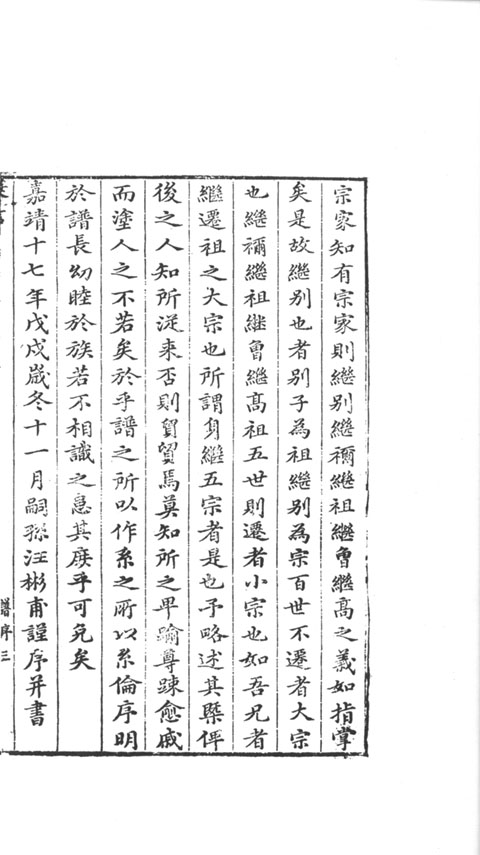 宗家知有宗家則繼別繼禰繼祖繼曾繼高之義如指掌
矣是故繼別也者別子為祖繼別為宗百世不遷者大宗
也繼禰繼祖継曾繼髙祖五世則遷者小宗也如吾兄者
繼遷祖之大宗也所謂身繼五宗者是也予略述其槩俾
後之人知所從来否則貿貿焉莫知所之卑踰尊踈愈戚
而塗人之不若矣於乎譜之所以作系之所以系倫序明
於譜長㓜睦於族若不相識之患其庻乎可免矣
嘉靖十七年戊戍嵗冬十一月嗣孫汪彬甫謹序并書
譜序三